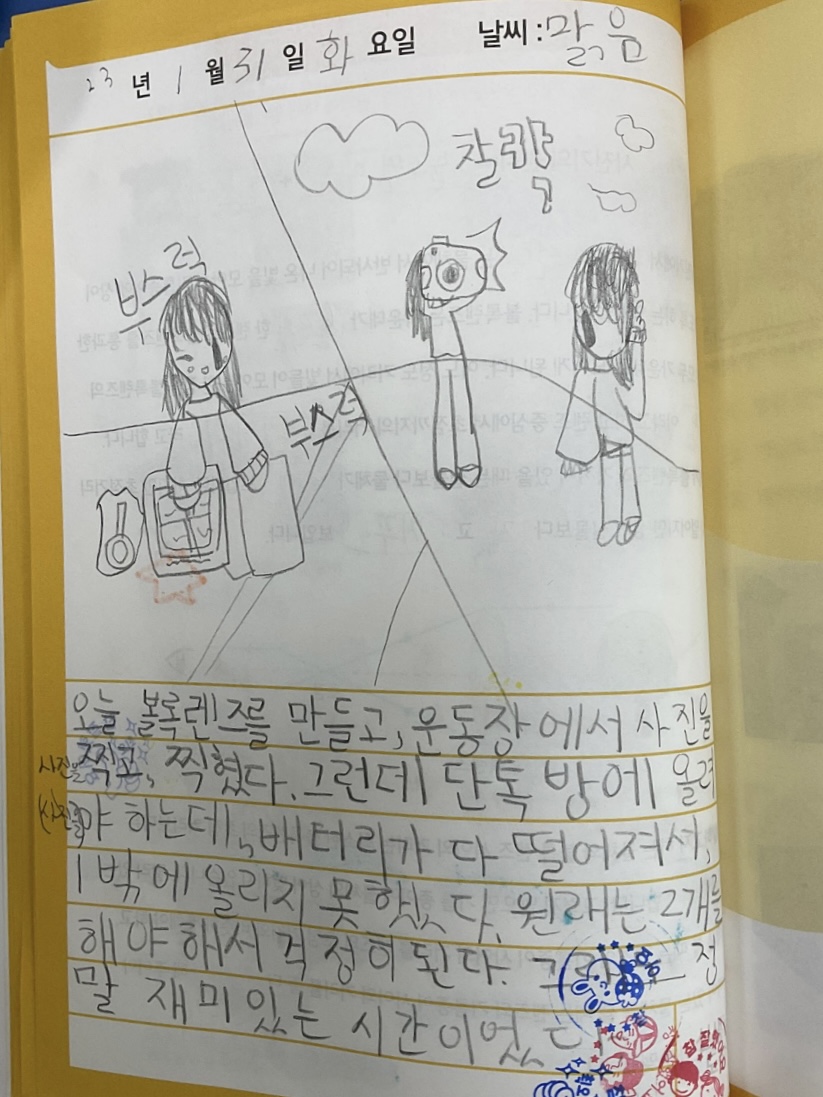 23년 1월 31일 화요일 날씨:맑음
찰칵
부스럭
부스럭
오늘 볼록렌즈를 만들고, 운동장에서 사진을
사진을 찍고, 찍혔다. 그런데 단톡방에 올려
(사진을)야 하는데, 배터리가 다 떨어져서,
1밖에 올리지 못했다. 원래는 2개를
해야 해서 걱정이 된다. 정
말 재미있는 시간이었
참 잘했어요